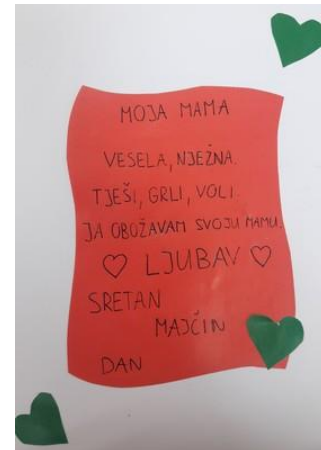 MOJA MAMA
VESELA, NJEŽNA.
TJEŠI, GRLI, VOLI.
JA OBOŽAVAM SVOJU MAMU.
♡ LJUBAV ♡
SRETAN
MAJČIN
DAN